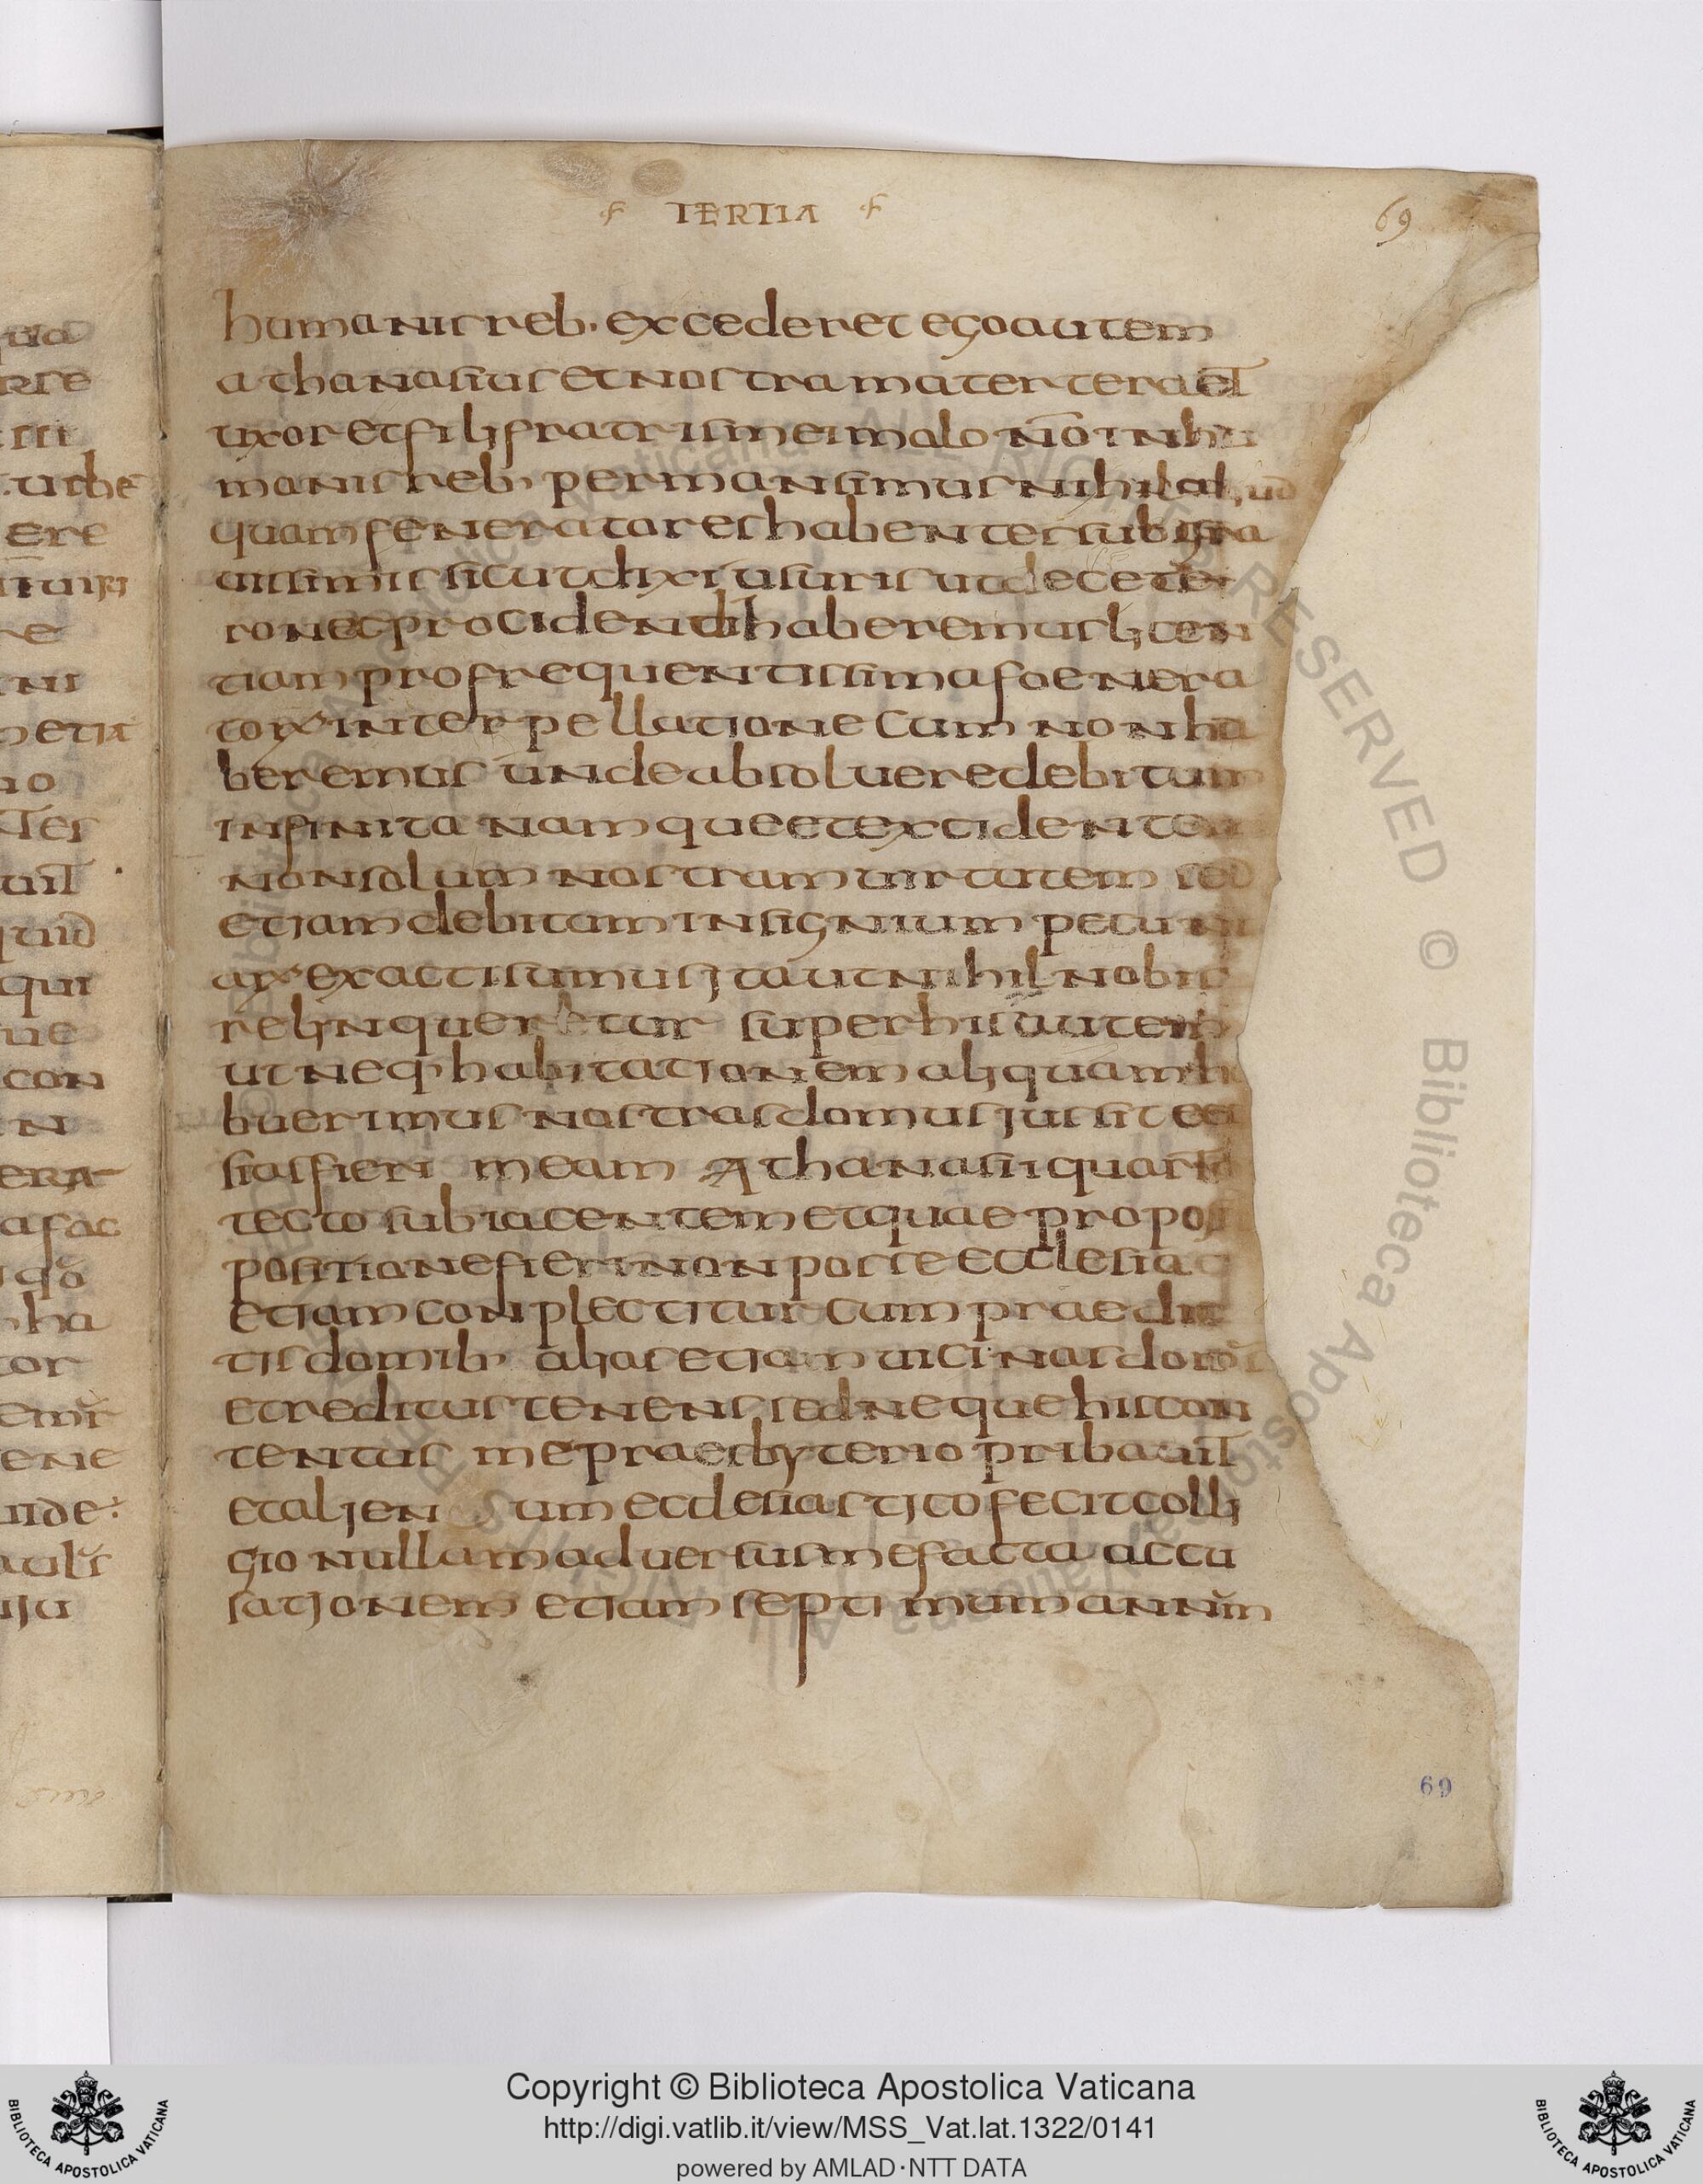 TERTIA
69
humanis reb· excederet ego autem
athanasius et nostra matertera et
uxor et filii fratris mei malo nō in hu
manis reb· permansimus nihil aliud
quam feneratores habentes sub gra
uissimis sicut dixi usuris ut de cete
ro nec procidendi haberemus licen
tiam pro frequentissima foenera
torum interpellatione cum non ha
beremus unde absoluere debitum
infinita namque et excidentem
non solum nostram uirtutem sed
etiam debitam insignium pecuni
arum exacti sumus ita ut nihil nobis
relinqueretur super his autem
ut neq· habitationem aliquam h
buerimus nostras domus iussit eccl
sias fieri meam Athanasii quarto
tecto subiacentem et quae pro
positione fieri non posse ecclesia
etiam conplectitur cum praedic
tis domib· alias etiam uicinas domos
et reditus tenens sed neque his con
tentus me praesbyterio pribauit
et alienum ecclesiastico fecit colli
gio nullam aduersus me facta accu
sationem etiam septimum annum
69
Copyright © Biblioteca Apostolica Vaticana
http://digi.vatlib.it/view/MSS_Vat.lat.1322/0141
powered by AMLAD·NTT DATA
BIBLIOTECA APOSTOLICA VATICANA
BIBLIOTECA APOSTOLICA VATICANA